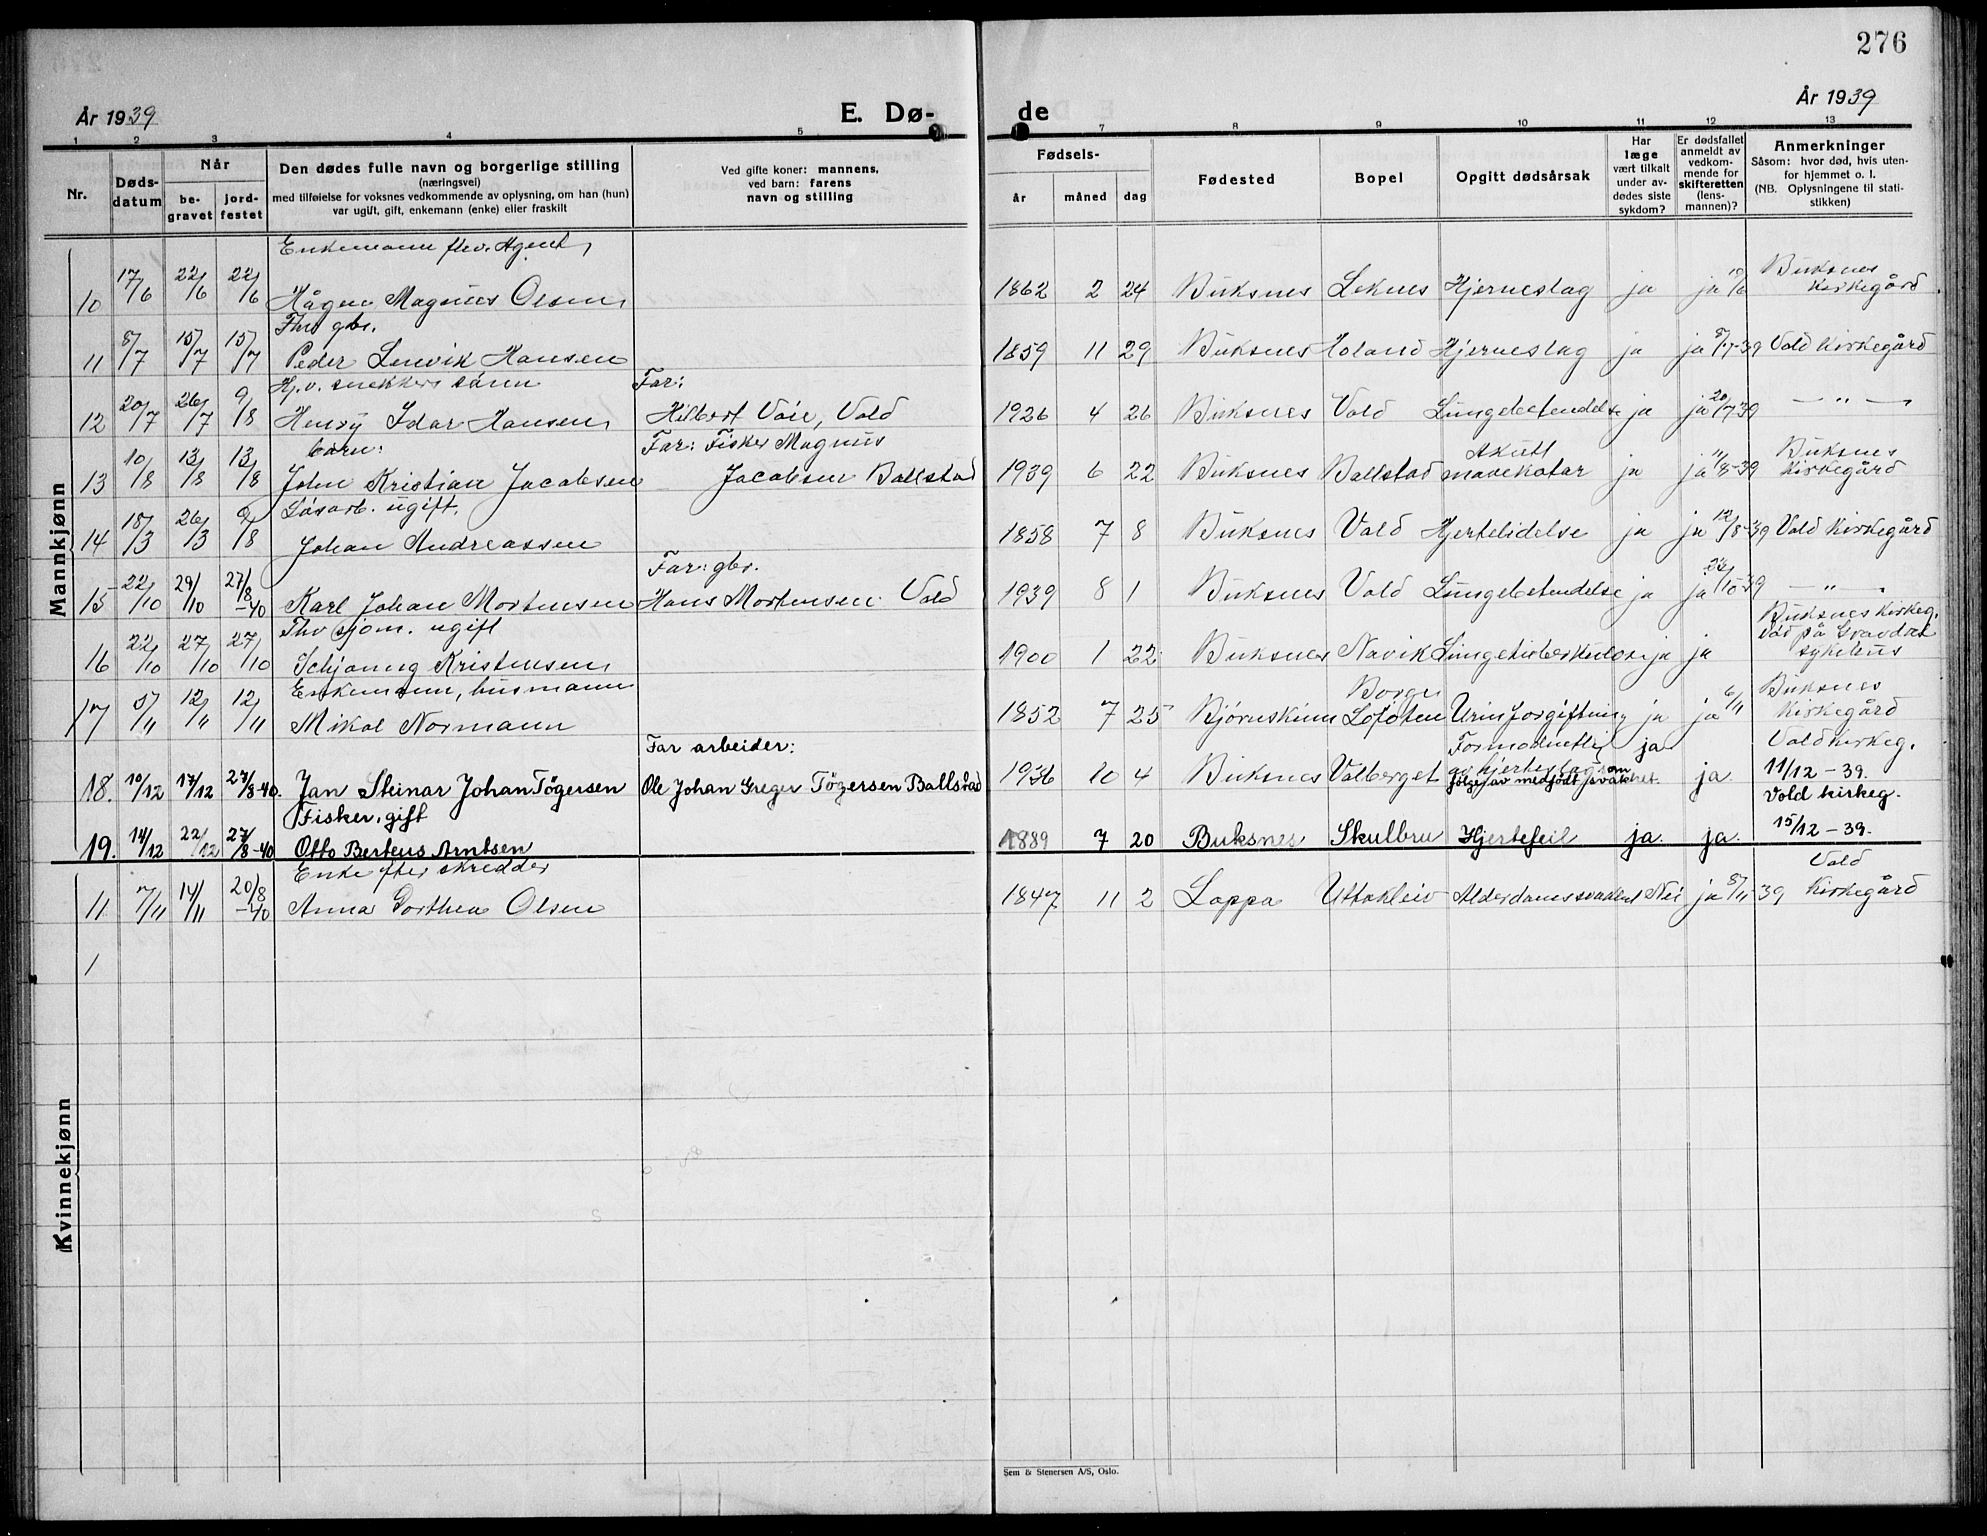 276
År 1939
E. Dø-
de
År 1939
1 2 3 4 5 7 8 9 10 11 12 13
Nr.
Døds-
datum
Når
be-
gravet
jord-
festet
Den dødes fulle navn og borgerlige stilling
(næringsvei)
med tilføielse for voksnes vedkommende av oplysning, om han (hun)
var ugift, gift, enkemann (enke) eller fraskilt
Ved gifte koner: mannens,
ved barn: farens
navn og stilling
Fødsels-
år måned dag
Fødested
Bopel
Opgitt dødsårsak
Har
læge
vært tilkalt
under av-
dødes siste
sykdom?
Er dødsfallet
anmeldt av
vedkom-
mende for
skifteretten
(lens-
mannen)?
Anmerkninger
Såsom: hvor død, hvis uten-
for hjemmet o. l.
(NB. Oplysningene til stati-
stikken)
Mannkjønn
Enkemann fhv. Agent,
10 17/6 22/6 22/6 Hågen Magnus Olsen, 1862 2 24 Buksnes Leknes Hjerneslag ja ja Buksnes
Kirkegård
Fhv gbr.
11 8/7 15/7 15/7 Peder Lenvik Hansen 1859 11 29 Buksnes Holand Hjerneslag ja ja 8/7-39 Vold Kirkegård
Hj.v. snekkers sønn Far:
12 20/7 26/7 9/8 Henry Idar Hansen Hilbert Voie, Vold 1926 4 26 Buksnes Vold Lungebetendelse ja ja 20/7-39 — " —
barn: Far: Fisker Magnus Akutt Buksnes
13 10/8 13/8 13/8 John Kristian Jacobsen Jacobsen Ballstad 1939 6 22 Buksnes Ballstad mavekatar ja ja 11/8-39 Kirkegård
Løsarb. ugift.
14 18/3 26/3 9/8 Johan Andreassen 1858 7 8 Buksnes Vold Hjertelidelse ja ja 12/8-39 Vold Kirkegård
Far: gbr.
15 22/10 29/10 27/8-40 Karl Johan Mortensen Hans Mortensen Vold 1939 8 1 Buksnes Vold Lungebetendelse ja ja /10-39 — " —
Fhv sjøm. ugift Buksnes Kirkeg.
død på Gravdal
16 22/10 27/10 27/10 Schjønng Kristensen 1900 1 22 Buksnes Navik Lungetuberkulose ja ja sykehus
Enkemann, husmann Borge Buksnes
17 5/11 12/11 12/11 Mikal Normann 1852 7 25 Bjørnskinn Lofoten Urinforgiftning ja ja 6/11 Kirkegård
Far arbeider: Formodentlig ja Vold kirkeg.
18. 10/12 17/12 27/8-40. Jan Steinar Johan Tögersen Ole Johan Greger Tögersen Ballstad 1936 10 4 Buksnes Valberget av hjerteslag som
følge av medfödt svakhet. ja 11/12-39.
Fisker, gift Vold kirkeg.
19. 14/12 22/12 27/8-40 Otto Berteus Arntsen 1889 7 20 Buksnes Skulbru Hjertefeil ja. ja. 15/12-39.
Kvinnekjønn
Enke efter skredder Vold
11 7/11 14/11 20/8-40 Anna Dorthea Olsen 1847 11 2 Loppa Uttakleiv Alderdomssvakhet Nei ja 8/11-39 Kirkegård
1
Sem & Stenersen A/S, Oslo.